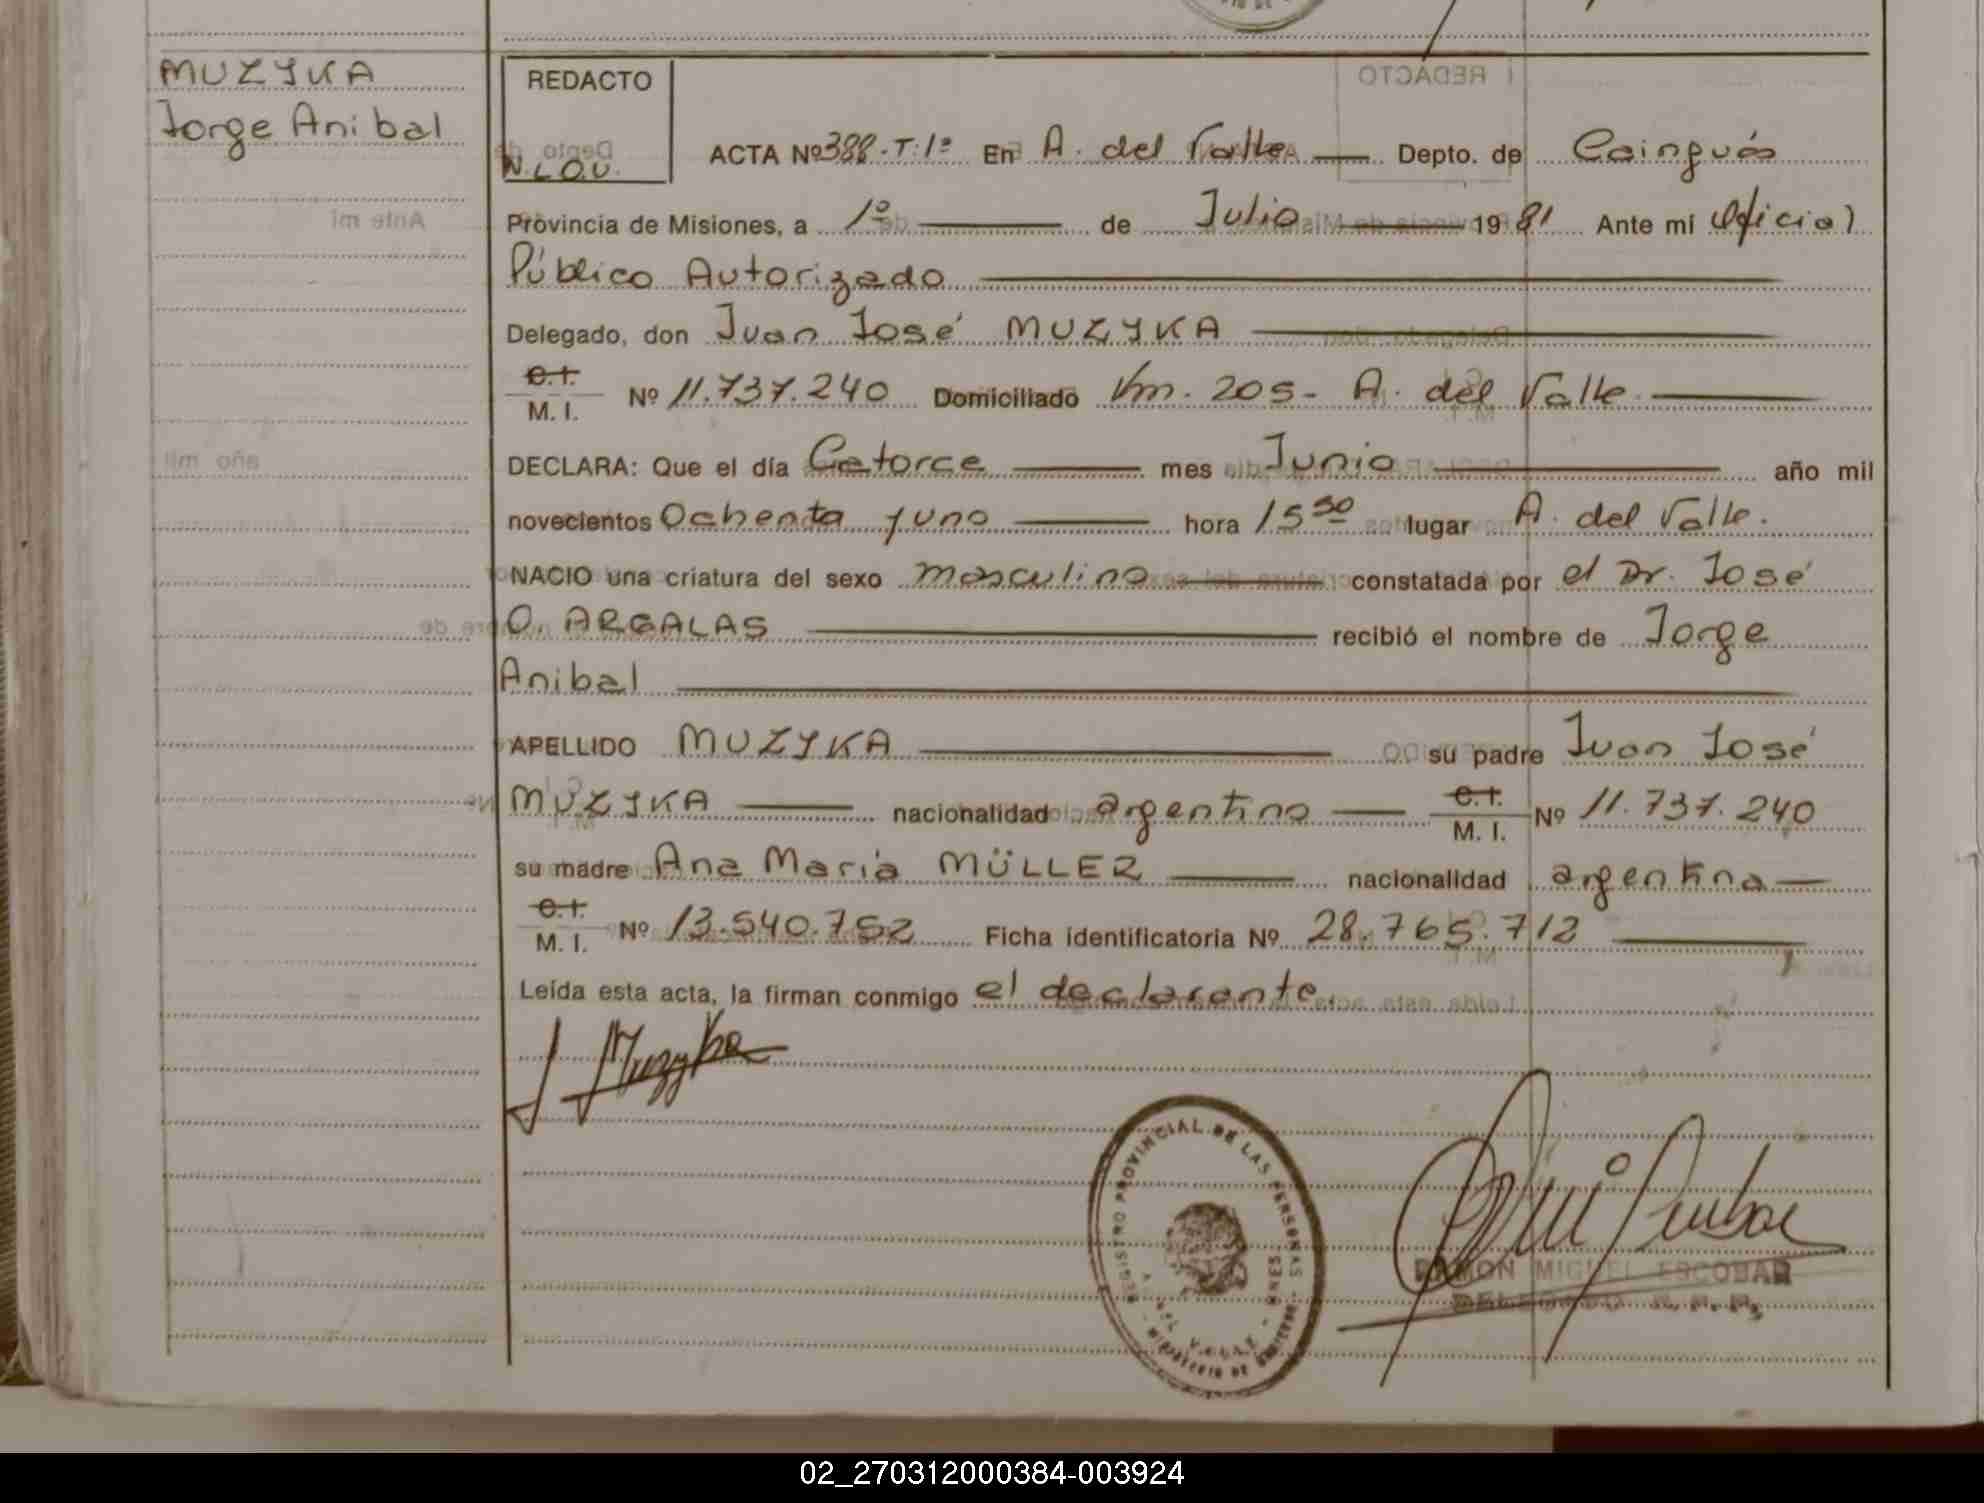 MUZYKA
Jorge Anibal
REDACTO
N.L.O.U.
ACTA Nº 388-T:1º En A. del Valle Depto. de Cainguás
Provincia de Misiones, a 1º de Julio 1981 Ante mi Oficial
Público Autorizado
Delegado, don Juan José MUZYKA
C.I.
M. I. Nº 11.737.240 Domiciliado Km. 205- A. del Valle
DECLARA: Que el día Catorce mes Junio año mil
novecientos Ochenta y uno hora 15 30 lugar A. del Valle.
NACIO una criatura del sexo masculino constatada por el Dr. José
O. ARGALAS recibió el nombre de Jorge
Anibal
APELLIDO MUZYKA su padre Juan José
MUZYKA nacionalidad argentino C.I. M. I. Nº 11.737.240
su madre Ana María MÜLLER nacionalidad argentina
C.I.
M. I. Nº 13.540.752 Ficha identificatoria Nº 28.765.712
Leída esta acta, la firman conmigo el declarante.
J Muzyka
REGISTRO PROVINCIAL DE LAS PERSONAS
A. DEL VALLE
MINISTERIO DE
RAMON MIGUEL ESCOBAR
DELEGADO R. P. P.
02_270312000384-003924